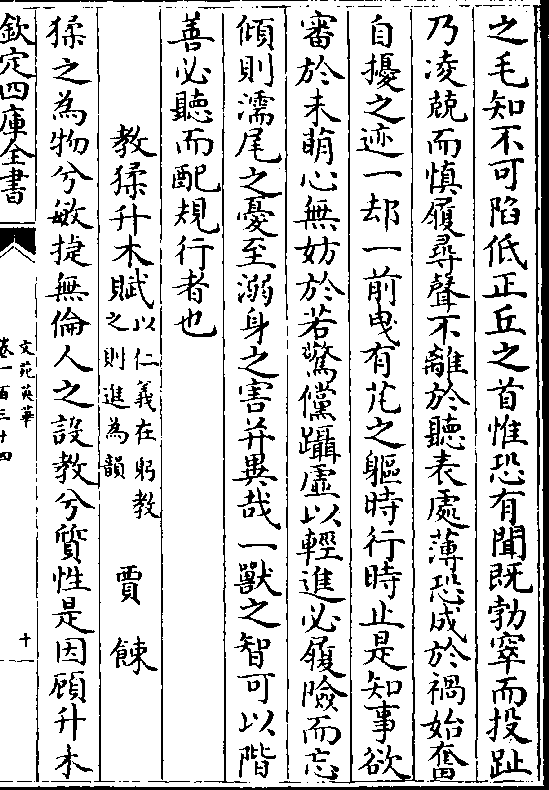 之毛知不可陷低正丘之首惟恐有聞既勃窣而投趾
乃凌兢而慎履尋聲不離於聽表處薄恐成於禍始奮
自擾之迹一却一前曳有芃之軀時行時止是知事欲
審於未萌心無妨於若驚儻躡虛以輕進必履險而忘
傾則濡尾之憂至溺身之害并異哉一獸之智可以階
善必聽而配規行者也
教猱升木賦以仁義在躬教之則進為韻 賈餗
猱之為物兮敏捷無倫人之設教兮質性是因顧升木
欽定四庫全書
文苑英華
卷一百三十四
十